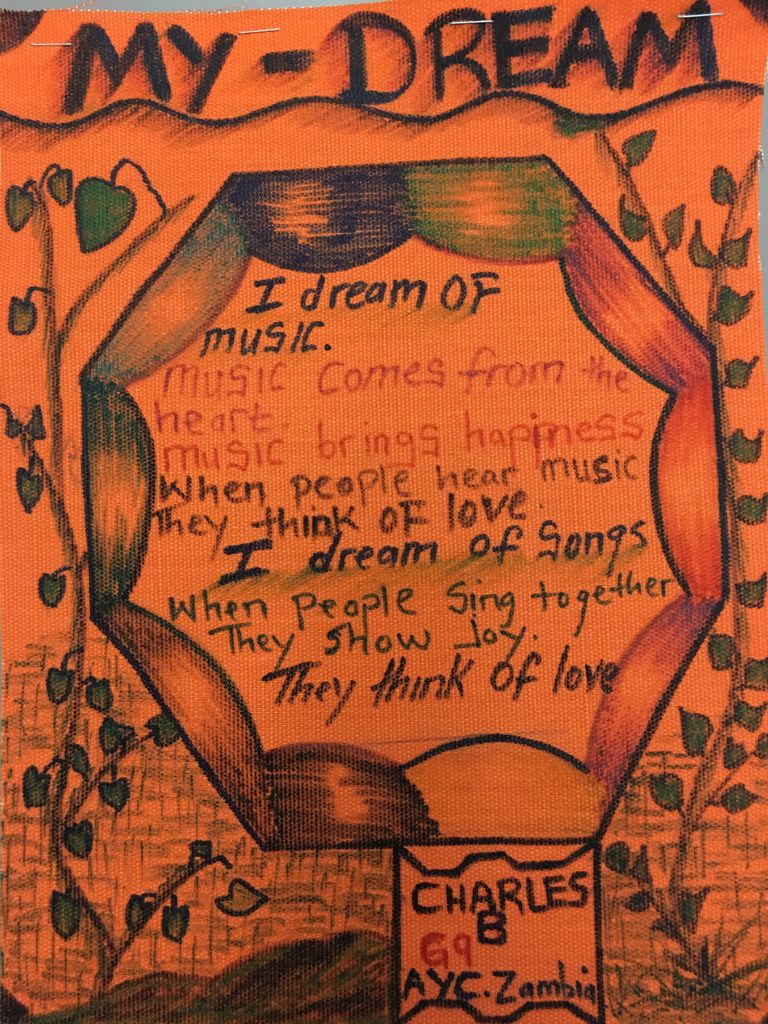 MY - DREAM
I dream OF
music.
music comes from the
heart.
music brings happiness
When people hear music
They think OF love.
I dream of Songs
When people Sing together
They show Joy.
They think Of love
CHARLES
B
G9
AYC. Zambia